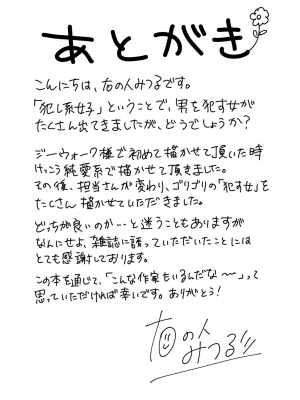 あとがき
こんにちは、右の人みつるです。
「犯し系女子」ということで、男を犯す女が
たくさん出てきましたが、どうでしょうか?
ジーウォーク様で初めて描かせて頂いた時
けっこう純愛系で描かせて頂きました。
その後、担当さんが変わり、ゴリゴリの「犯す女」を
たくさん描かせていただきました。
どっちが良いのか…と迷うこともありますが
なんにせよ、雑誌に誘っていただいたことには
とても感謝しております。
この本を通じて、「こんな作家もいるんだな〜」って
思っていただければ幸いです。ありがとう!
右の人
みつる!!